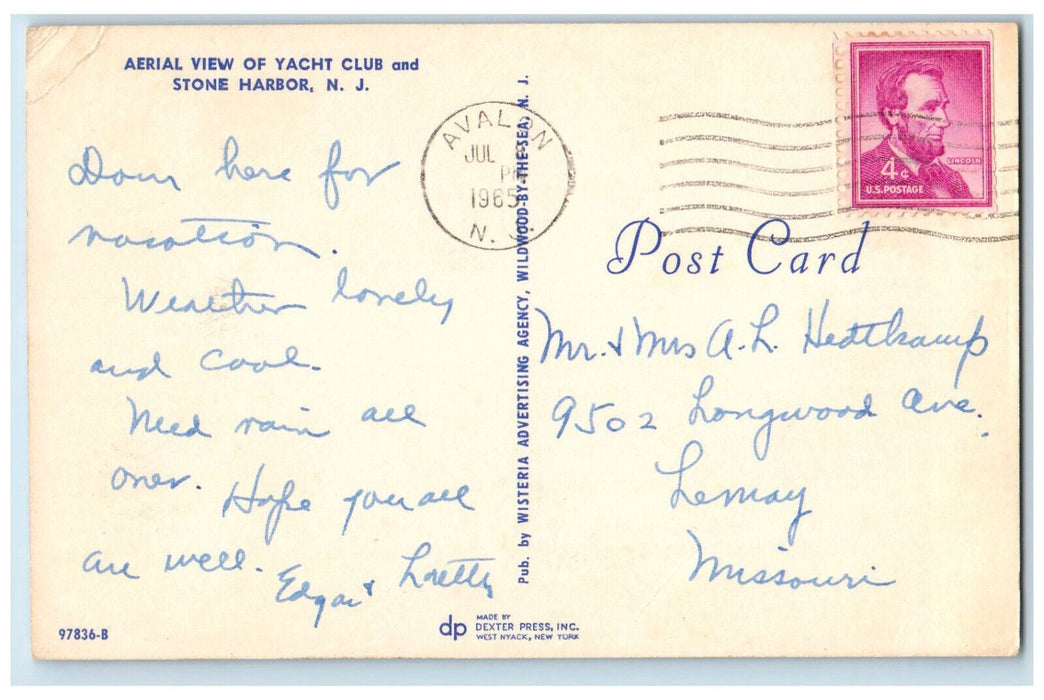 AERIAL VIEW OF YACHT CLUB and
STONE HARBOR, N. J.
Down here for
vacation.
Weather lovely
and cool.
Need rain all
over. Hope you all
are well.
Edgar & Loretta
97836-B
Pub. by WISTERIA ADVERTISING AGENCY, WILDWOOD-BY-THE-SEA, N. J.
dp
MADE BY
DEXTER PRESS, INC.
WEST NYACK, NEW YORK
AVALON
JUL
PM
1965
N. J.
LINCOLN
4¢
U.S. POSTAGE
Post Card
Mr. & Mrs A. L. Hedtkamp
9502 Longwood Ave.
Lemay
Missouri